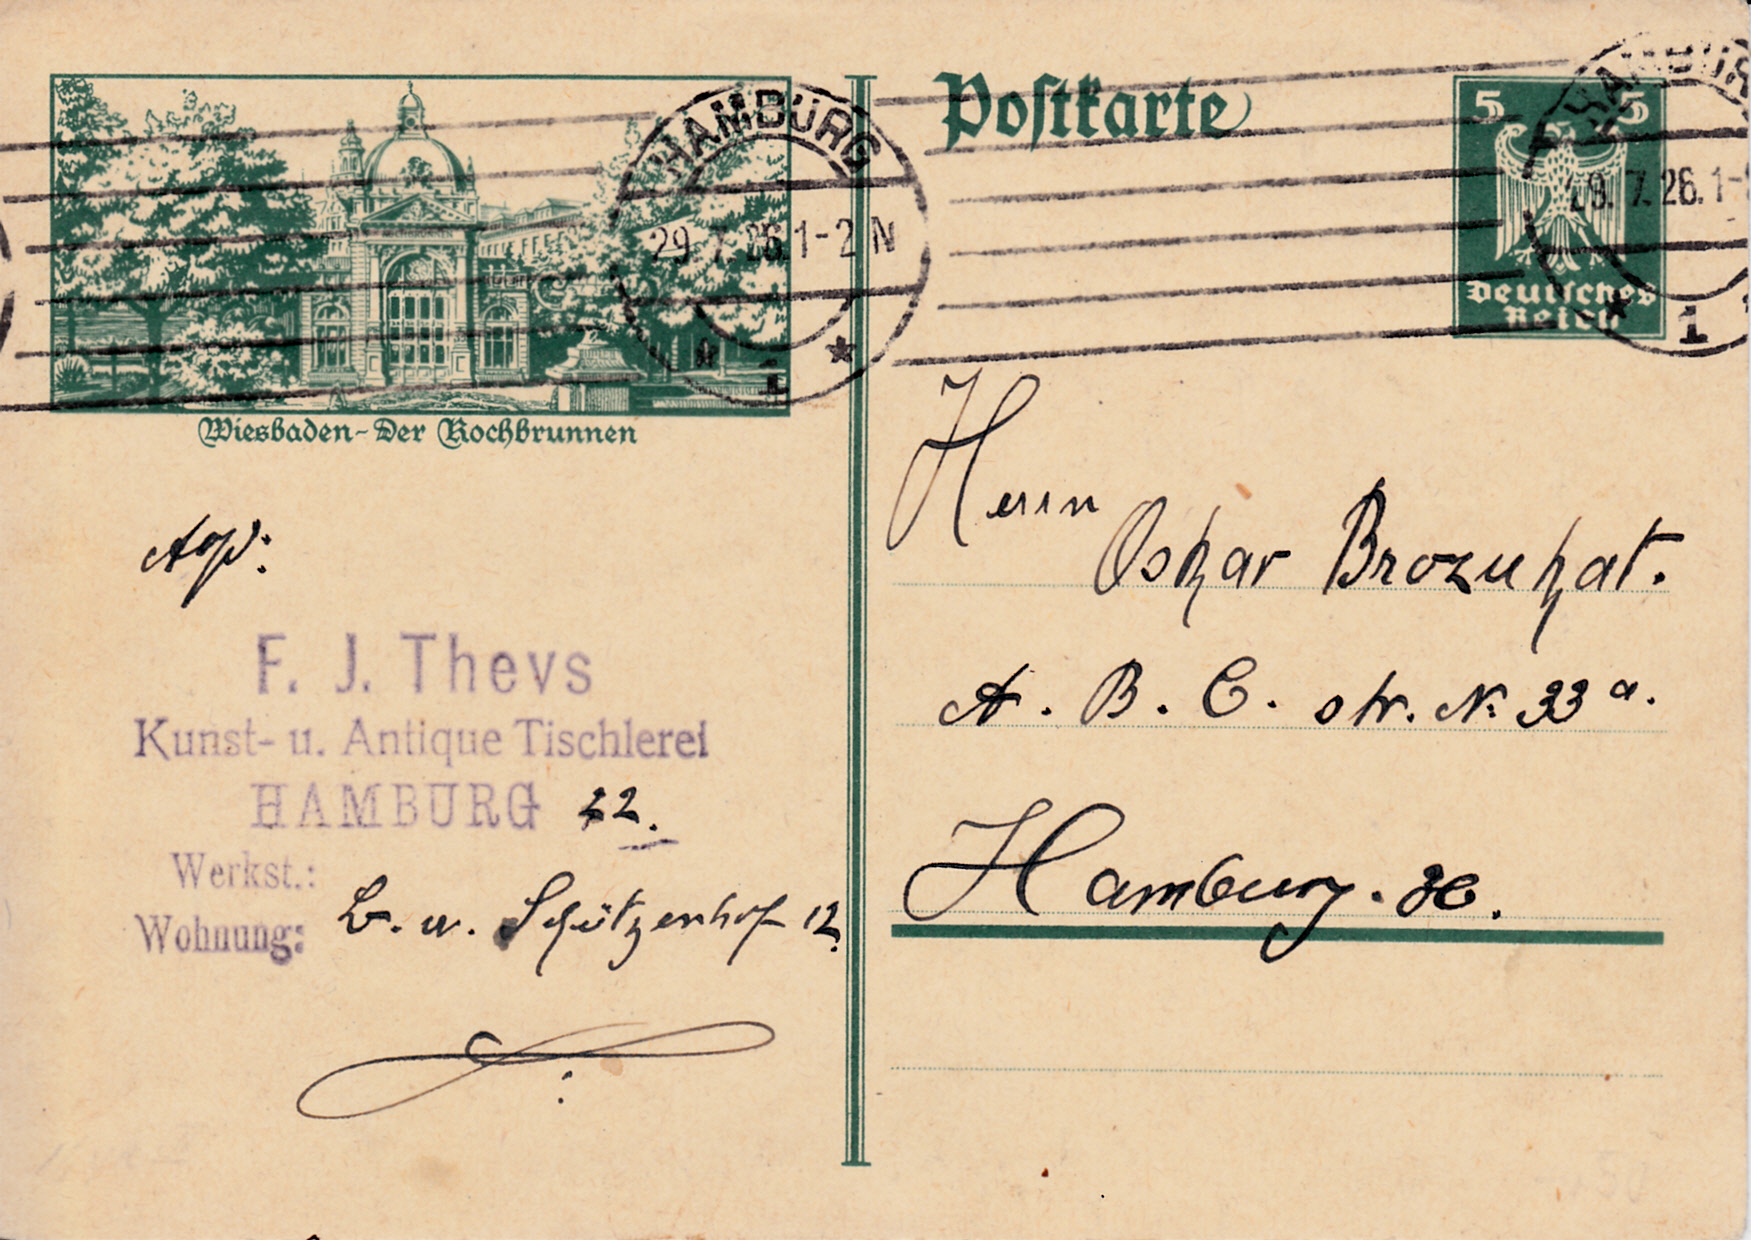 Postkarte
5 5
Deutsches
Reich
HAMBURG
29.7.26.1-2 N
* 1 *
HAMBUR
29.7.26.1-
* 1
Wiesbaden-Der Kochbrunnen
Herrn
Oskar Brozukat.
A. B. C. str. N: 33 a.
Hamburg. 36.
F. J. Thevs
Kunst- u. Antique Tischlerei
HAMBURG 22.
Werkst.:
Wohnung: B. u. Schützenhof 12.